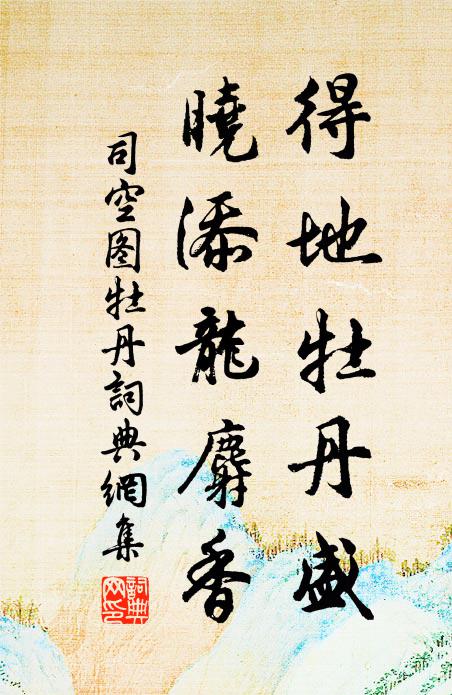 得地牡丹盛
曉添龍麝香
司空图牡丹詞典網集
詞典网印